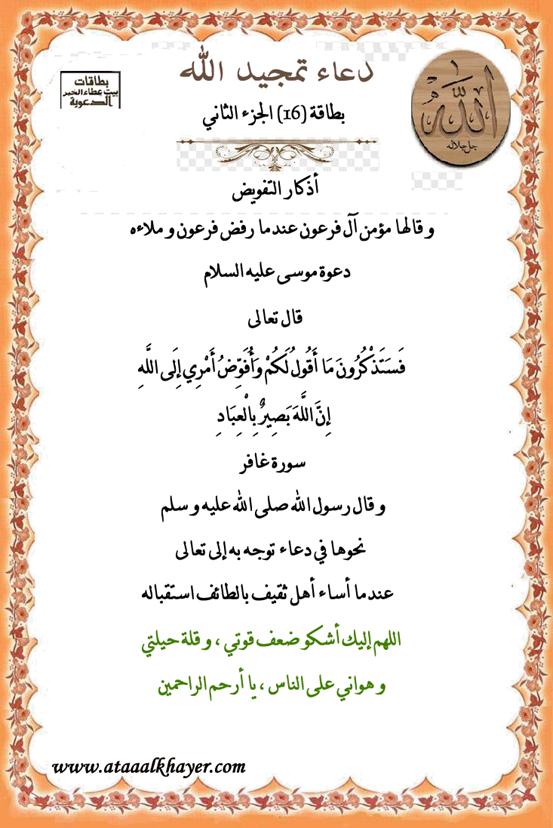 دعاء تمجيد الله
بطاقات
بيت عطاء الخير
الدعوية
الله
جل جلاله
بطاقة (16) الجزء الثاني
أذكار التفويض
وقالها مؤمن آل فرعون عندما رفض فرعون وملاءه
دعوة موسى عليه السلام
قال تعالى
فَسَتَذْكُرُونَ مَا أَقُولُ لَكُمْ وَأُفَوِّضُ أَمْرِي إِلَى اللَّهِ
إِنَّ اللَّهَ بَصِيرٌ بِالْعِبَادِ
سورة غافر
وقال رسول الله صلى الله عليه وسلم
نحوها في دعاء توجه به إلى تعالى
عندما أساء أهل ثقيف بالطائف استقباله
اللهم إليك أشكو ضعف قوتي ، وقلة حيلتي
وهواني على الناس ، يا أرحم الراحمين
www.ataaalkhayer.com